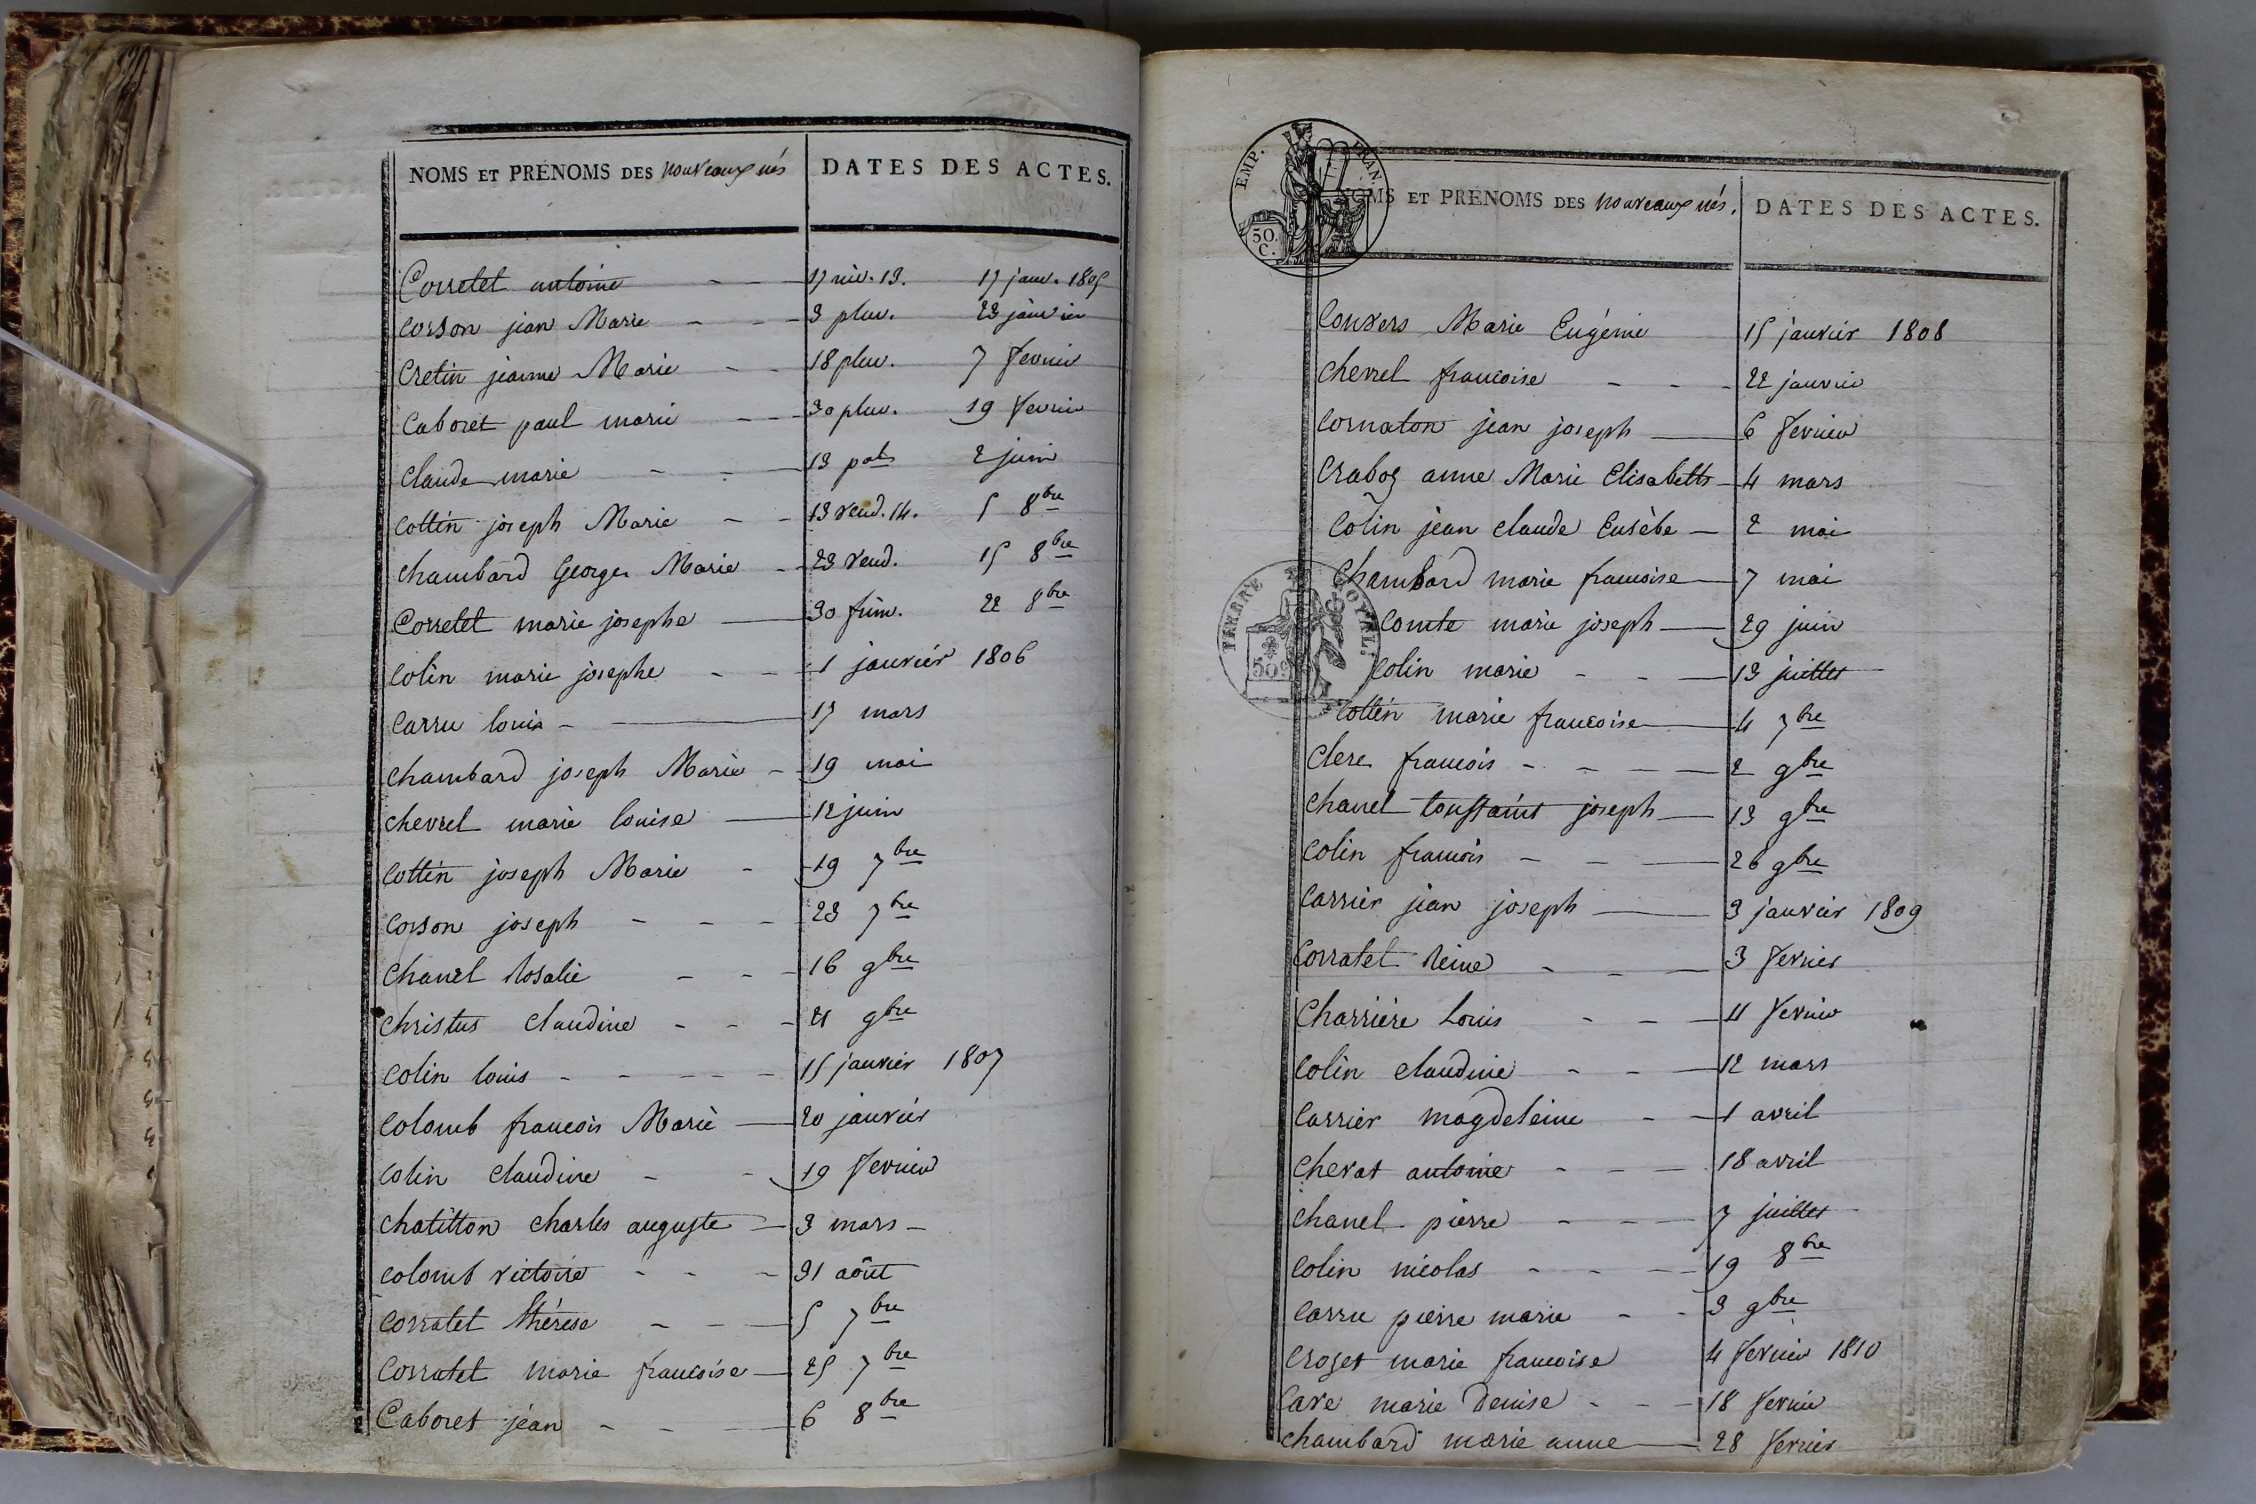 NOMS ET PRÉNOMS DES nouveaux nés DATES DES ACTES.
Corretet antoine 17 niv. 13. 17 janv. 1805
corson jean Marie 3 pluv. 23 janvier
Cretin jeanne Marie 18 pluv. 7 fevrier
Caboret paul marie 30 pluv. 19 fevrier
Claude marie 13 2 juin
Cottin joseph Marie 13 vend. 14. 5 8bre
Chambard George Marie 23 vend. 15 8bre
Corretet marie josephe 30 frim. 22 8bre
Colin marie josephe 1 janvier 1806
Carru louis 17 mars
Chambard joseph Marie 19 mai
Chevrel marie louise 12 juin
Cottin joseph Marie 19 7bre
Corson joseph 23 7bre
Chanel Rosalie 16 9bre
Christus Claudine 21 9bre
Colin louis 15 janvier 1807
Colomb francois Marie 20 janvier
Colin Claudine 19 fevrier
Chatillon charles auguste 3 mars
Colomb victoire 31 août
Corratet thérèse 5 7bre
Corratet marie francoise 25 7bre
Caboret jean 6 8bre
EMP. FRAN
50. C.
NOMS ET PRÉNOMS DES nouveaux nés. DATES DES ACTES.
Convers Marie Eugénie 15 janvier 1808
Chevrel francoise 22 janvier
Cornaton jean joseph 6 fevrier
Craboz anne Marie Elisabeth 4 mars
Colin jean claude Eusèbe 2 mai
Chambard marie francoise 7 mai
TIMBRE ROYAL.
50c
Comte marie joseph 29 juin
Colin marie 13 juillet
Cottin marie francoise 4 7bre
Clere francois 2 9bre
Chanel toussaint joseph 13 9bre
Colin francois 26 9bre
Carrier jean joseph 3 janvier 1809
Corratet Reine 3 fevrier
Charrière Louis 11 fevrier
Colin claudine 12 mars
Carrier magdeleine 1 avril
Chevat antoine 18 avril
Chanel pierre 7 juillet
Colin nicolas 19 8bre
Carru pierre marie 3 9bre
Crozet marie francoise 4 fevrier 1810
Cave marie Denise 18 fevrier
Chambard marie anne 28 fevrier